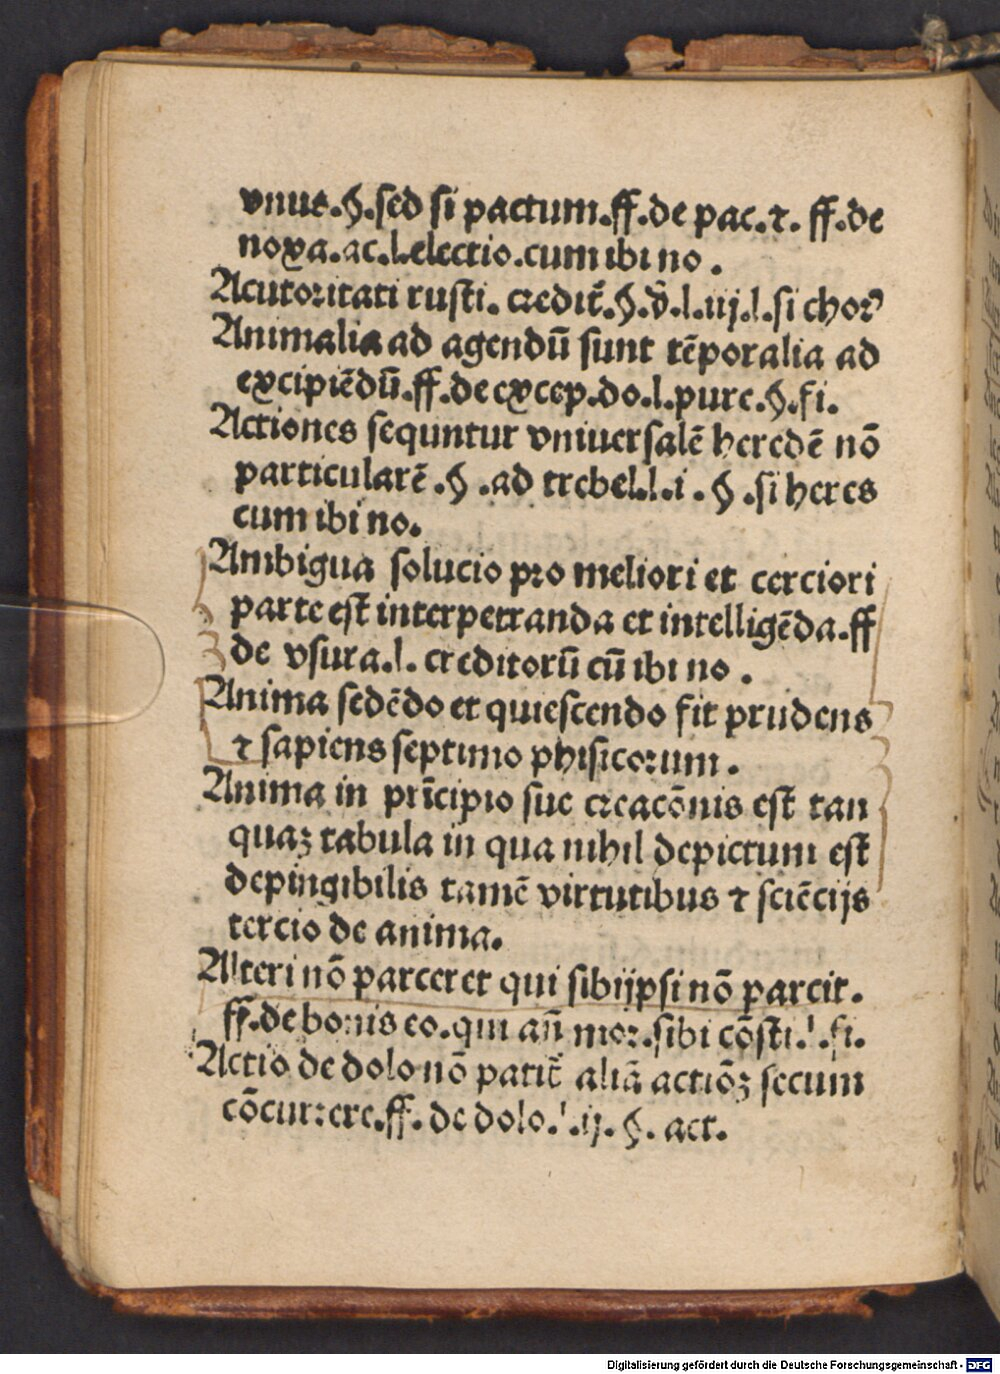 vnus.§.sed si pactum.ff.de pac.⁊. ff.de
noxa.ac.l.electio.cum ibi no.
Acutoritati rusti. credit̄.§.v̄.l.iij.l.si chorꝰ
Animalia ad agendū sunt tēporalia ad
excipiēdū.ff.de excep.do.l.pure.§.fi.
Actiones sequntur vniuersalē heredē nō
particularē.§.ad trebel.l.i.§.si heres
cum ibi no.
Ambigua solucio pro meliori et cerciori
parte est̄ interpetranda et intelligēda.ff
de vsura.l. creditorū cū ibi no.
Anima sedēdo et quiescendo fit prudens
⁊ sapiens septimo phisicorum.
Anima in prīcipio sue creacōnis est̄ tan
quaꝫ tabula in qua nihil depictum est̄
depingibilis tamē virtutibus ⁊ sciēcijs
tercio de anima.
Alteri nō parceret qui sibijpsi nō parcit.
ff.de bonis eo.qui an̄ mor.sibi cōsti.l.fi.
Actio de dolo nō patit̄ aliā actiōꝫ secum
cōcurrere.ff.de dolo.l.ij.§.act.
Digitalisierung gefördert durch die Deutsche Forschungsgemeinschaft - DFG